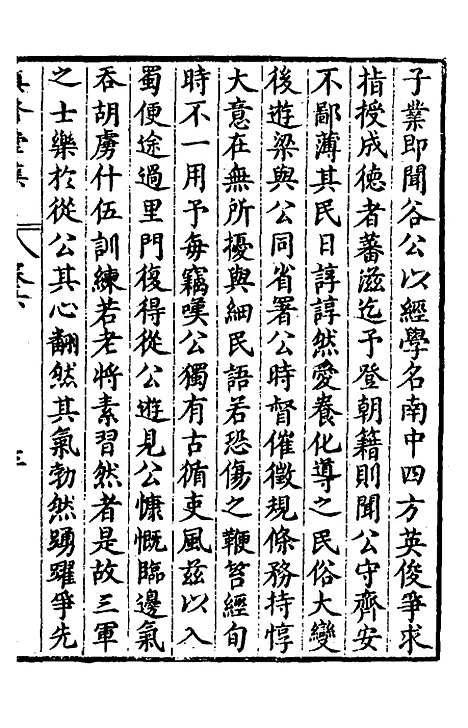 子業即聞谷公以經學名南中四方英俊爭求
指授成德者蕃滋迄予登朝籍則聞公守齊安
不鄙薄其民日諄諄然愛養化導之民俗大變
後遊梁與公同省署公時督催徵規條務持惇
大意在無所擾與細民語若恐傷之鞭笞經旬
時不一用予每竊嘆公獨有古循吏風兹以入
蜀便途過里門復得從公遊見公慷慨臨邊氣
吞胡虜什伍訓練若老將素習然者是故三軍
之士樂於從公其心翻然其氣勃然踴躍爭先